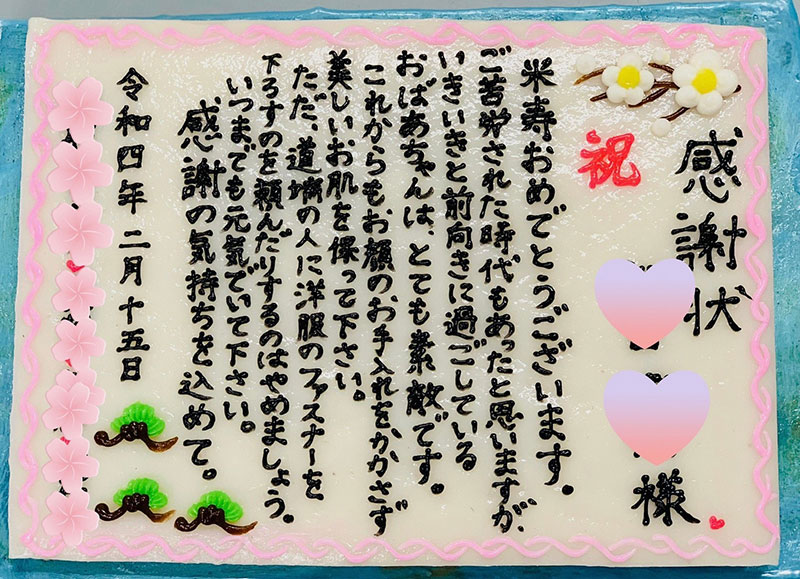 感謝状
様
祝
米寿おめでとうございます。
ご苦労された時代もあったと思いますが、
いきいきと前向きに過ごしている
おばあちゃんは、とても素敵です。
これからもお顔のお手入れをかかさず
美しいお肌を保って下さい。
ただ、道端の人に洋服のファスナーを
下ろすのを頼んだりするのはやめましょう。
いつまでも元気でいて下さい。
感謝の気持ちを込めて。
令和四年二月十五日